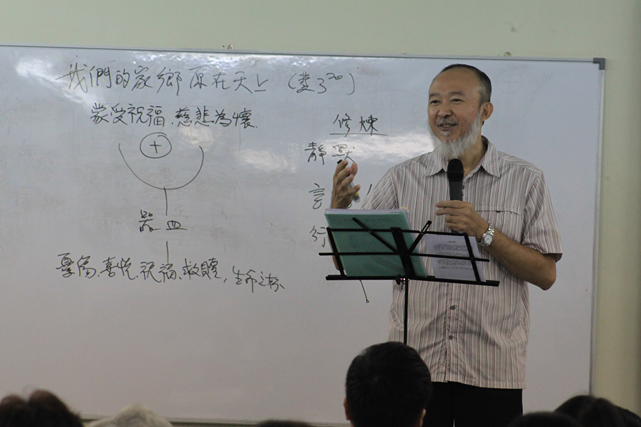 我們的家鄉原在天上 (斐3²⁰)
蒙受祝福、慈悲為懷
+
器皿
喜悅、祝福、救贖、生命之糧
修煉
靜默
言
行